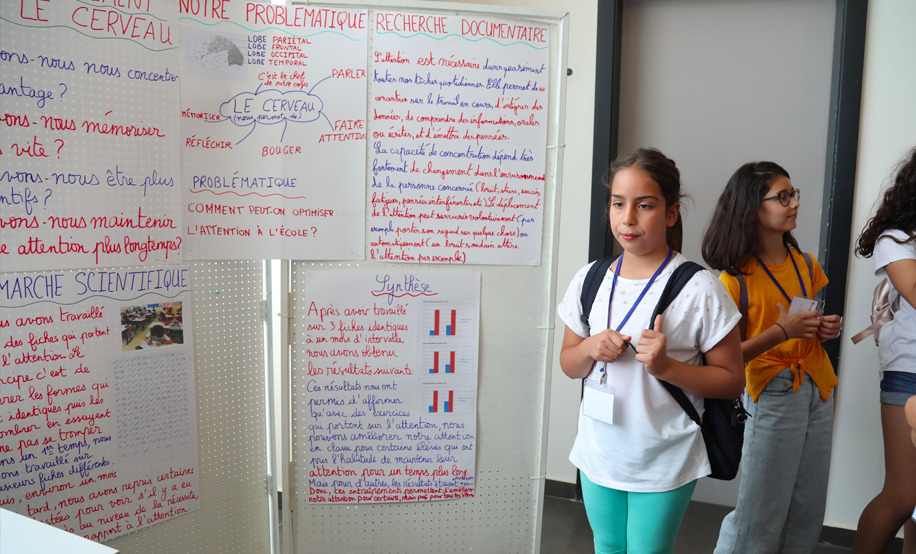 LE CERVEAU
ons-nous nous concentrer
antage ?
ons-nous mémoriser
vite ?
vons-nous être plus
ntifs ?
vons-nous maintenir
e attention plus longtemps?
NOTRE PROBLÉMATIQUE
LOBE PARIÉTAL
LOBE FRONTAL
LOBE OCCIPITAL
LOBE TEMPORAL
C'est le chef
de notre corps
PARLER
LE CERVEAU
(nous permet de)
MÉMORISER
FAIRE
ATTENTION
RÉFLÉCHIR
BOUGER
PROBLÉMATIQUE
COMMENT PEUT-ON OPTIMISER
L'ATTENTION À L'ÉCOLE?
RECHERCHE DOCUMENTAIRE
L'attention est nécessaire dans quasiment
toutes nos tâches quotidiennes. Elle permet de se
concentrer sur le travail en cours, d'intégrer des
données, de comprendre des informations, orales
ou écrites, et d'émettre des pensées.
La capacité de concentration dépend très
fortement de changement dans l'environnement
de la personne concernée (bruit, stress, soucis,
fatigues, pensées interférentes etc). Le déplacement
de l'attention peut survenir volontairement (par
exemple porter son regard sur quelque chose) ou
automatiquement (un bruit soudain attire
l'attention par exemple)
MARCHE SCIENTIFIQUE
us avons travaillé
des fiches qui portent
l'attention. Le
ncipe c'est de
érer les formes qui
identiques puis les
ombrer en essayant
ne pas se tromper
ons un 1er temps, nous
ons travaillé sur
sieurs fiches différentes
environ un mois
tard, nous avons repris certaines
pour voir s'il y a eu
au niveau de la réussite,
rapport à l'attention
Synthèse
Après avoir travaillé
sur 3 fiches identiques
à un mois d'intervalle
nous avons obtenu
les résultats suivants:
Ces résultats nous ont
permes d'affirmer
qu'avec des exercices
qui portent sur l'attention, nous
pouvons améliorer notre attention
en classe pour certains élèves qui ont
pris l'habitude de maintenir leur
attention pour un temps plus long.
Mais pour d'autres, les résultats étaient
Donc, ces entraînements permettent d'améliorer
notre attention pour certains, mais pas pour tous les élèves